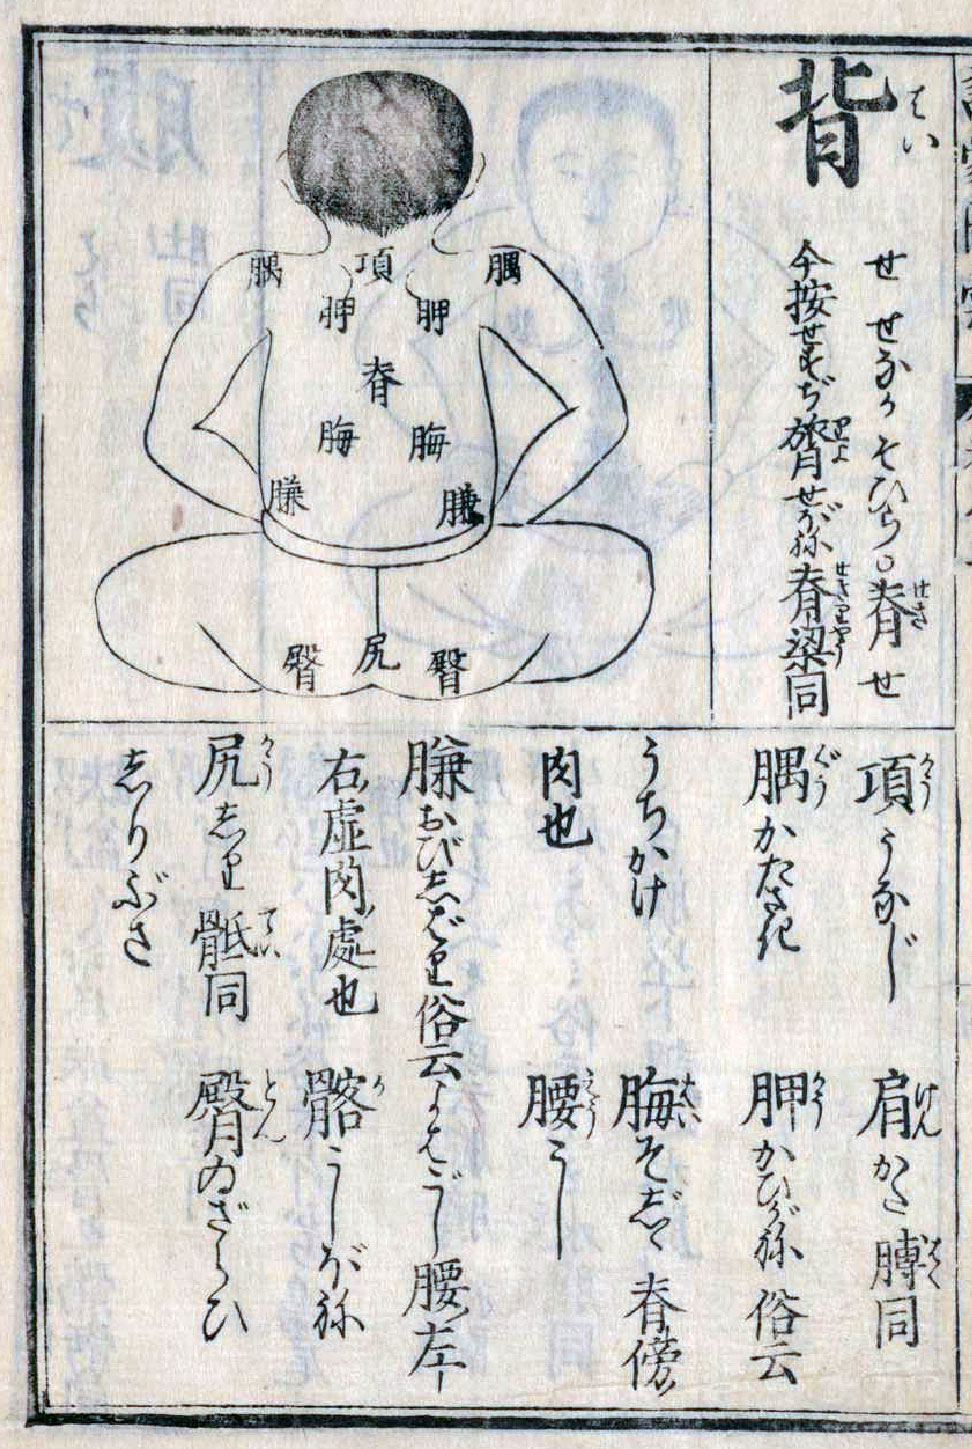 背 はい
せ せなか そひら○脊 せき せ
今按せすぢ膂 りよ せがね脊梁 せきりやう 同
腢 項 腢
胛 胛
脊
脢 脢
膁 膁
臀 尻 臀
項 かう うなじ 肩 けん かた 膊 はく 同
腢 ぐう かたさき 胛 かう かひがね 俗云
うちかけ 脢 ばい そじゝ 脊傍
肉也 腰 えう こし
膁 おびしばり 俗云よはごし 腰左
右虚肉處也 髂 か こしがね
尻 かう しり 骶 てい 同 臀 とん ゐざらひ
しりぶさ